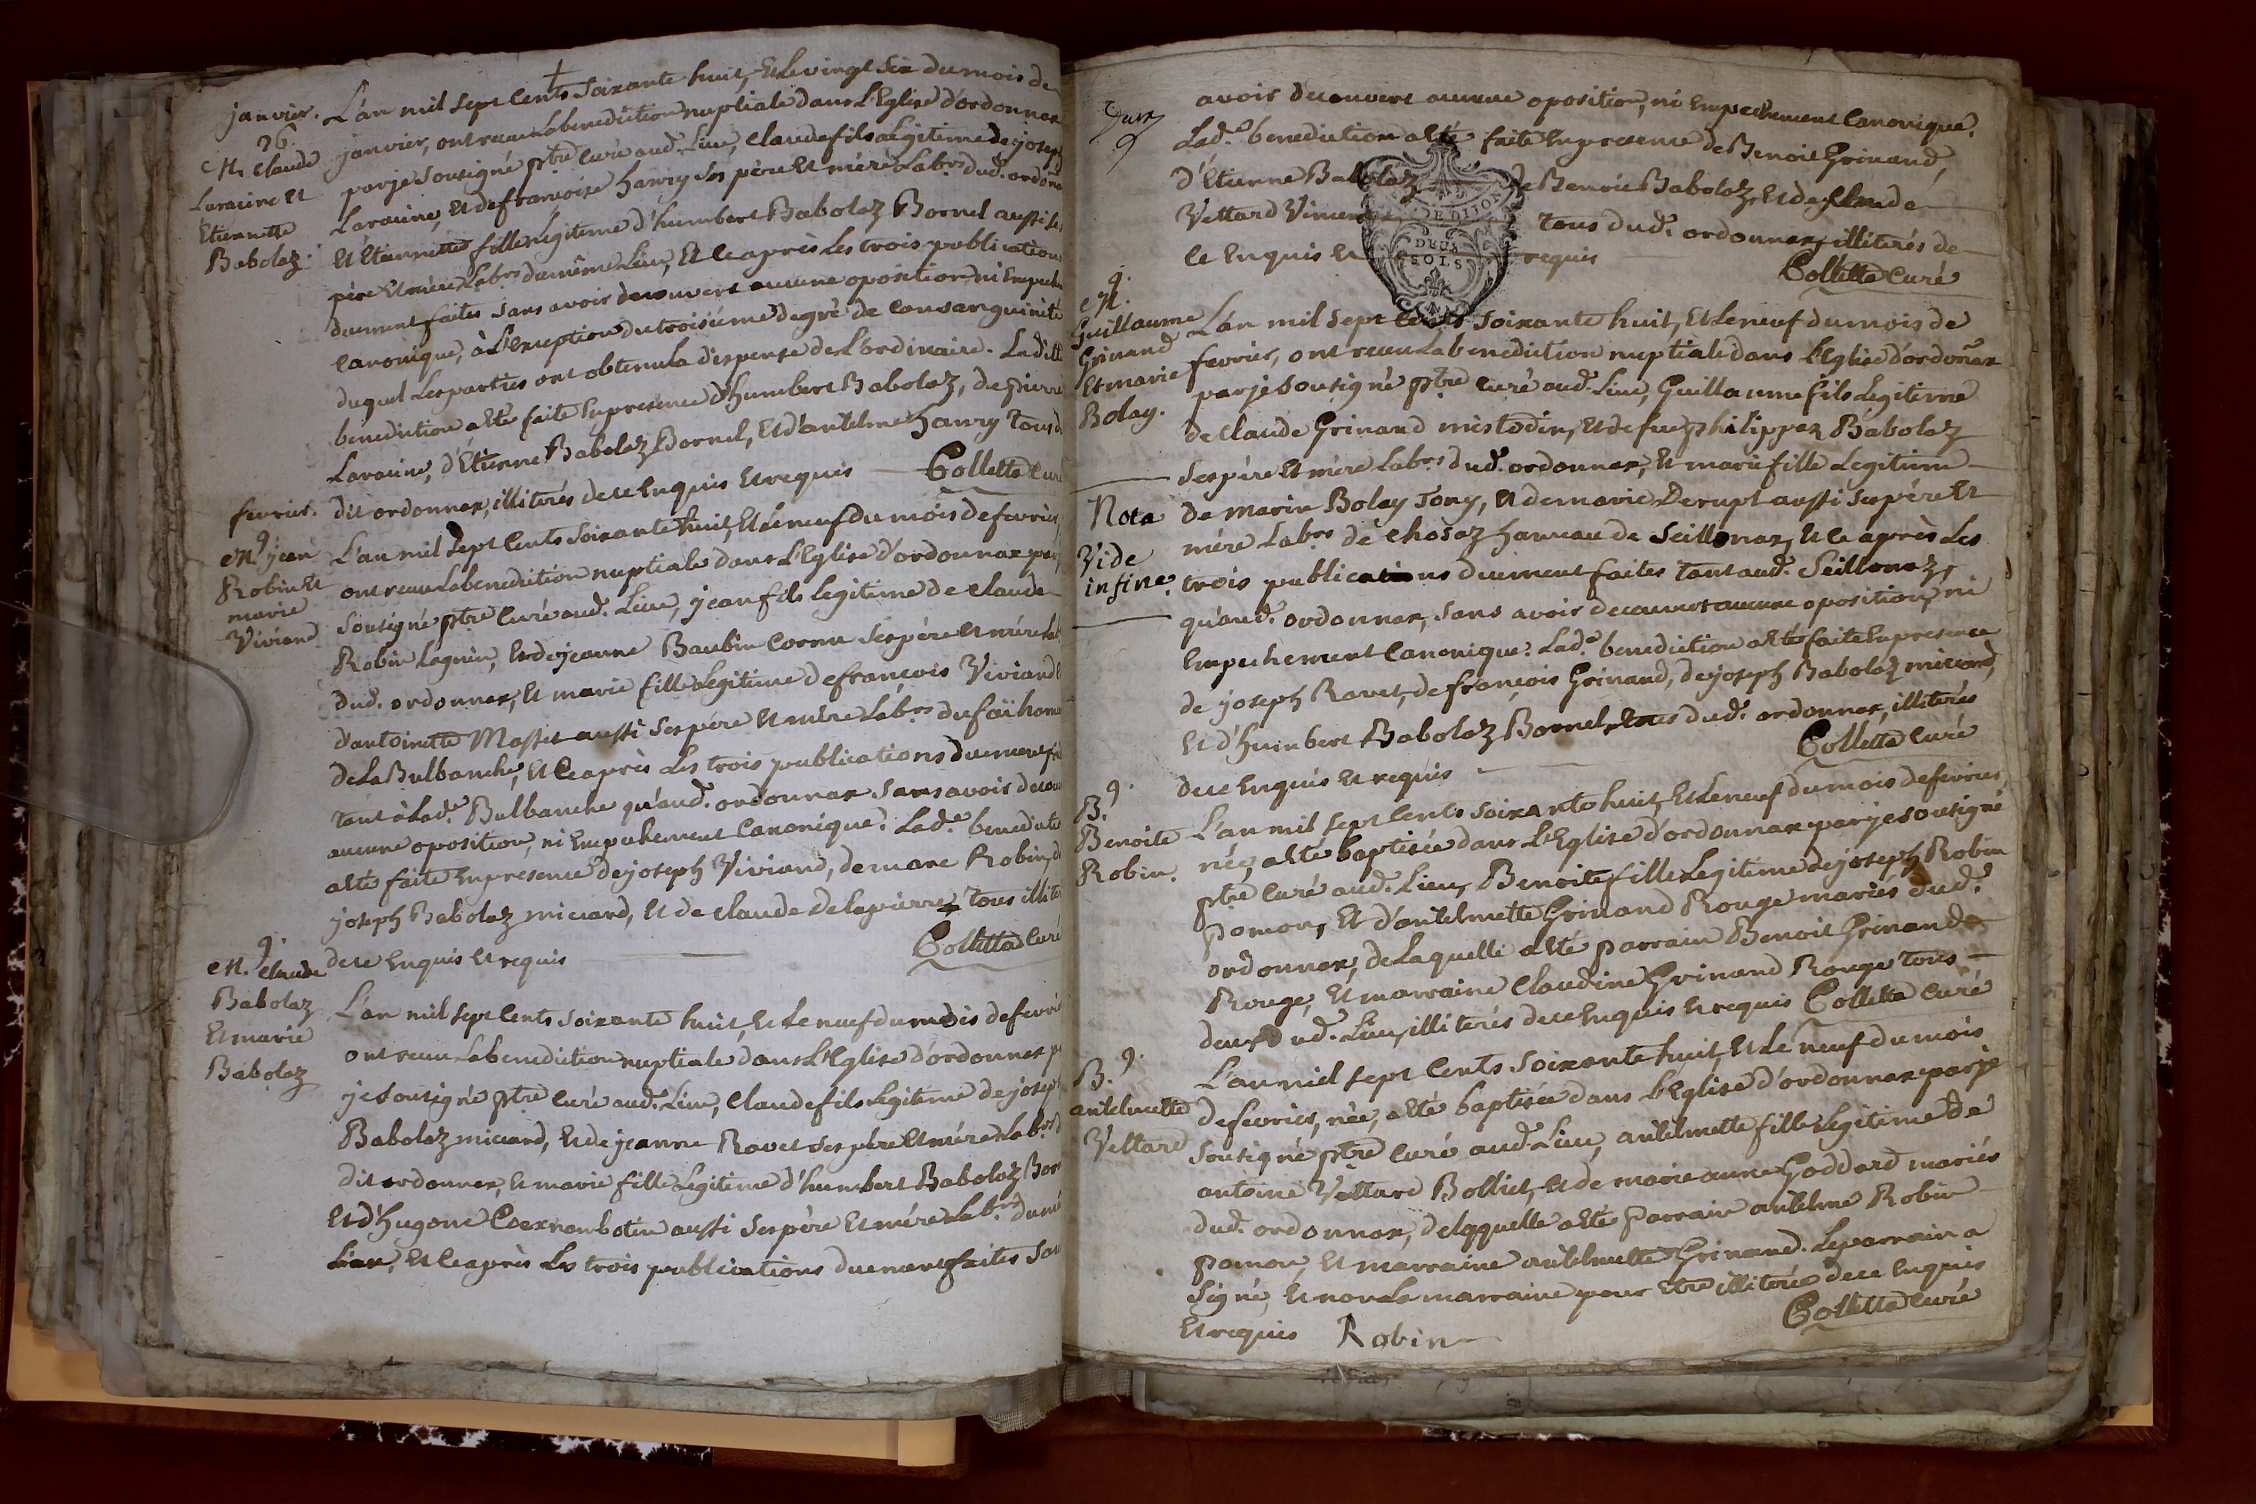 janvier.
26.
M. Claude
Laraine Et
Etiennette
Babolaz.
L'an mil sept Cents Soixante huit, Et Le vingt Six du mois de
janvier, ont receu La benediction nuptiale dans L'Eglise d'ordonnax
par je sousigné ptre Curé aud. Lieu, Claude fils Legitime de joseph
Laraine, Et de francoise hanry ses père Et mère Labrs. dud. ordonax
Et Etiennette fille Legitime d'humbert Babolaz Bornel aussi ses
père Et mère Labrs du même Lieu, Et Ce après Les trois publications
duement faites sans avoir decouvert aucune oposition, ni Empeche
Canonique, à L'Exeption du troisième degré de Consanguinité
duquel Les parties ont obtenu La dispense de L'ordinaire. Laditte
benediction a Eté faite En presence d'humbert Babolaz, de pierre
Laraine, d'Etienne Babolaz Bornel, Et d'antelme hanry tous du
dit ordonnax, illiterés de ce Enquis Et requis Colletta Curé
fevrier.
9
M. jean
Robin Et
marie
Viviand
L'an mil sept Cents Soixante huit, Et Le neuf du mois de fevrier,
ont receu La benediction nuptiale dans L'Eglise d'ordonnax par je
sousigné ptre Curé aud. Lieu, jean fils Legitime de Claude
Robin Lagnin, Et de jeanne Baubin Cornu ses père Et mère Lab
dud. ordonnax, Et marie fille Legitime de francois Viviand Et
d'antoinette Masset aussi ses père Et mère Labrs. du faï hame
de La Bulbanche, Et Ce après Les trois publications duement fai
tant à Lad.e Bulbanche qu'aud. ordonnax sans avoir decou
aucune oposition, ni Empechement Canonique. Lad.e benediction
a Eté faite En presence de joseph Viviand, de marc Robin, de
joseph Babolaz miciard, Et de Claude delapierre tous illiter
de ce Enquis Et requis Colletta Curé
9.
M. Claude
Babolaz
Et marie
Babolaz
L'an mil sept Cents Soixante huit, Et Le neuf du mois de fevrier
ont receu La benediction nuptiale dans L'Eglise d'ordonnax par
je sousigné ptre Curé aud. Lieu, Claude fils Legitime de joseph
Babolaz miciard, Et de jeanne Ravet ses père Et mère Labrs d
dit ordonnax, Et marie fille Legitime d'humbert Babolaz Bor
Et d'hugone aussi ses père Et mère Labrs du mê
Lieu, Et Ce après Les trois publications duement faites San
avoir decouvert aucune oposition, ni Empechement Canonique.
Lad.e benediction a Eté faite En presence de Benoit Grinand,
d'Etienne Babolaz de Benoit Babolaz, Et de Claude
Vettard tous dud. ordonnax, illiterés de
Ce Enquis Et requis
Colletta Curé
DE DIJON
DEUX
SOLS
9.
M.
Guillaume
Grinand
Et marie
Bolay.
Nota
Vide
in fine.
L'an mil sept Cents Soixante huit, Et Le neuf du mois de
fevrier, ont receu La benediction nuptiale dans L'Eglise d'ordonax
par je sousigné ptre Curé aud. Lieu, Guillaume fils Legitime
de Claude Grinand mistodin, Et de feu philippaz Babolaz
ses père Et mère Labrs dud. ordonnax, Et marie fille Legitime
de marin Bolay Tony, Et de marie Derupt aussi ses père Et
mère Labrs de Chosaz hameau de Seillonaz, Et Ce après Les
trois publications duement faites tant aud. Seillonaz,
qu'aud. ordonnax, sans avoir decouvert aucune oposition, ni
Empechement Canonique. Lad.e benediction a Eté faite En presence
de joseph Ravet, de françois Grinand, de joseph Babolaz miciard,
Et d'humbert Babolaz Bornel, tous dud. ordonnax, illiterés
de ce Enquis Et requis Colletta Curé
9.
B.
Benoite
Robin.
L'an mil sept Cents Soixante huit, Et Le neuf du mois de fevrier,
née, a Eté baptisée dans L'Eglise d'ordonnax par je sousigné
ptre Curé aud. Lieu, Benoite fille Legitime de joseph Robin
pomon, Et d'antelmette Grinand Rouge mariés dud.
ordonnax, de Laquelle a Eté parrain Benoit Grinand
Rouge, Et marraine Claudine Grinand Rouge tous
deux dud. Lieu, illiterés de ce Enquis Et requis Colletta Curé
9.
B.
antelmette
Vettard
L'an mil sept Cents Soixante huit, Et Le neuf du mois
de fevrier, née, a Eté baptisée dans L'Eglise d'ordonnax par je
sousigné ptre Curé aud. Lieu, antelmette fille Legitime de
antoine Vettard Bolliet, Et de marie anne Goddard mariés
dud. ordonnax, de laquelle a Eté parrain antelme Robin
pomon, Et marraine antelmette Grinand. Le parrain a
signé, Et non La marraine pour Etre illiterée de ce Enquis
Et requis Robin Colletta Curé